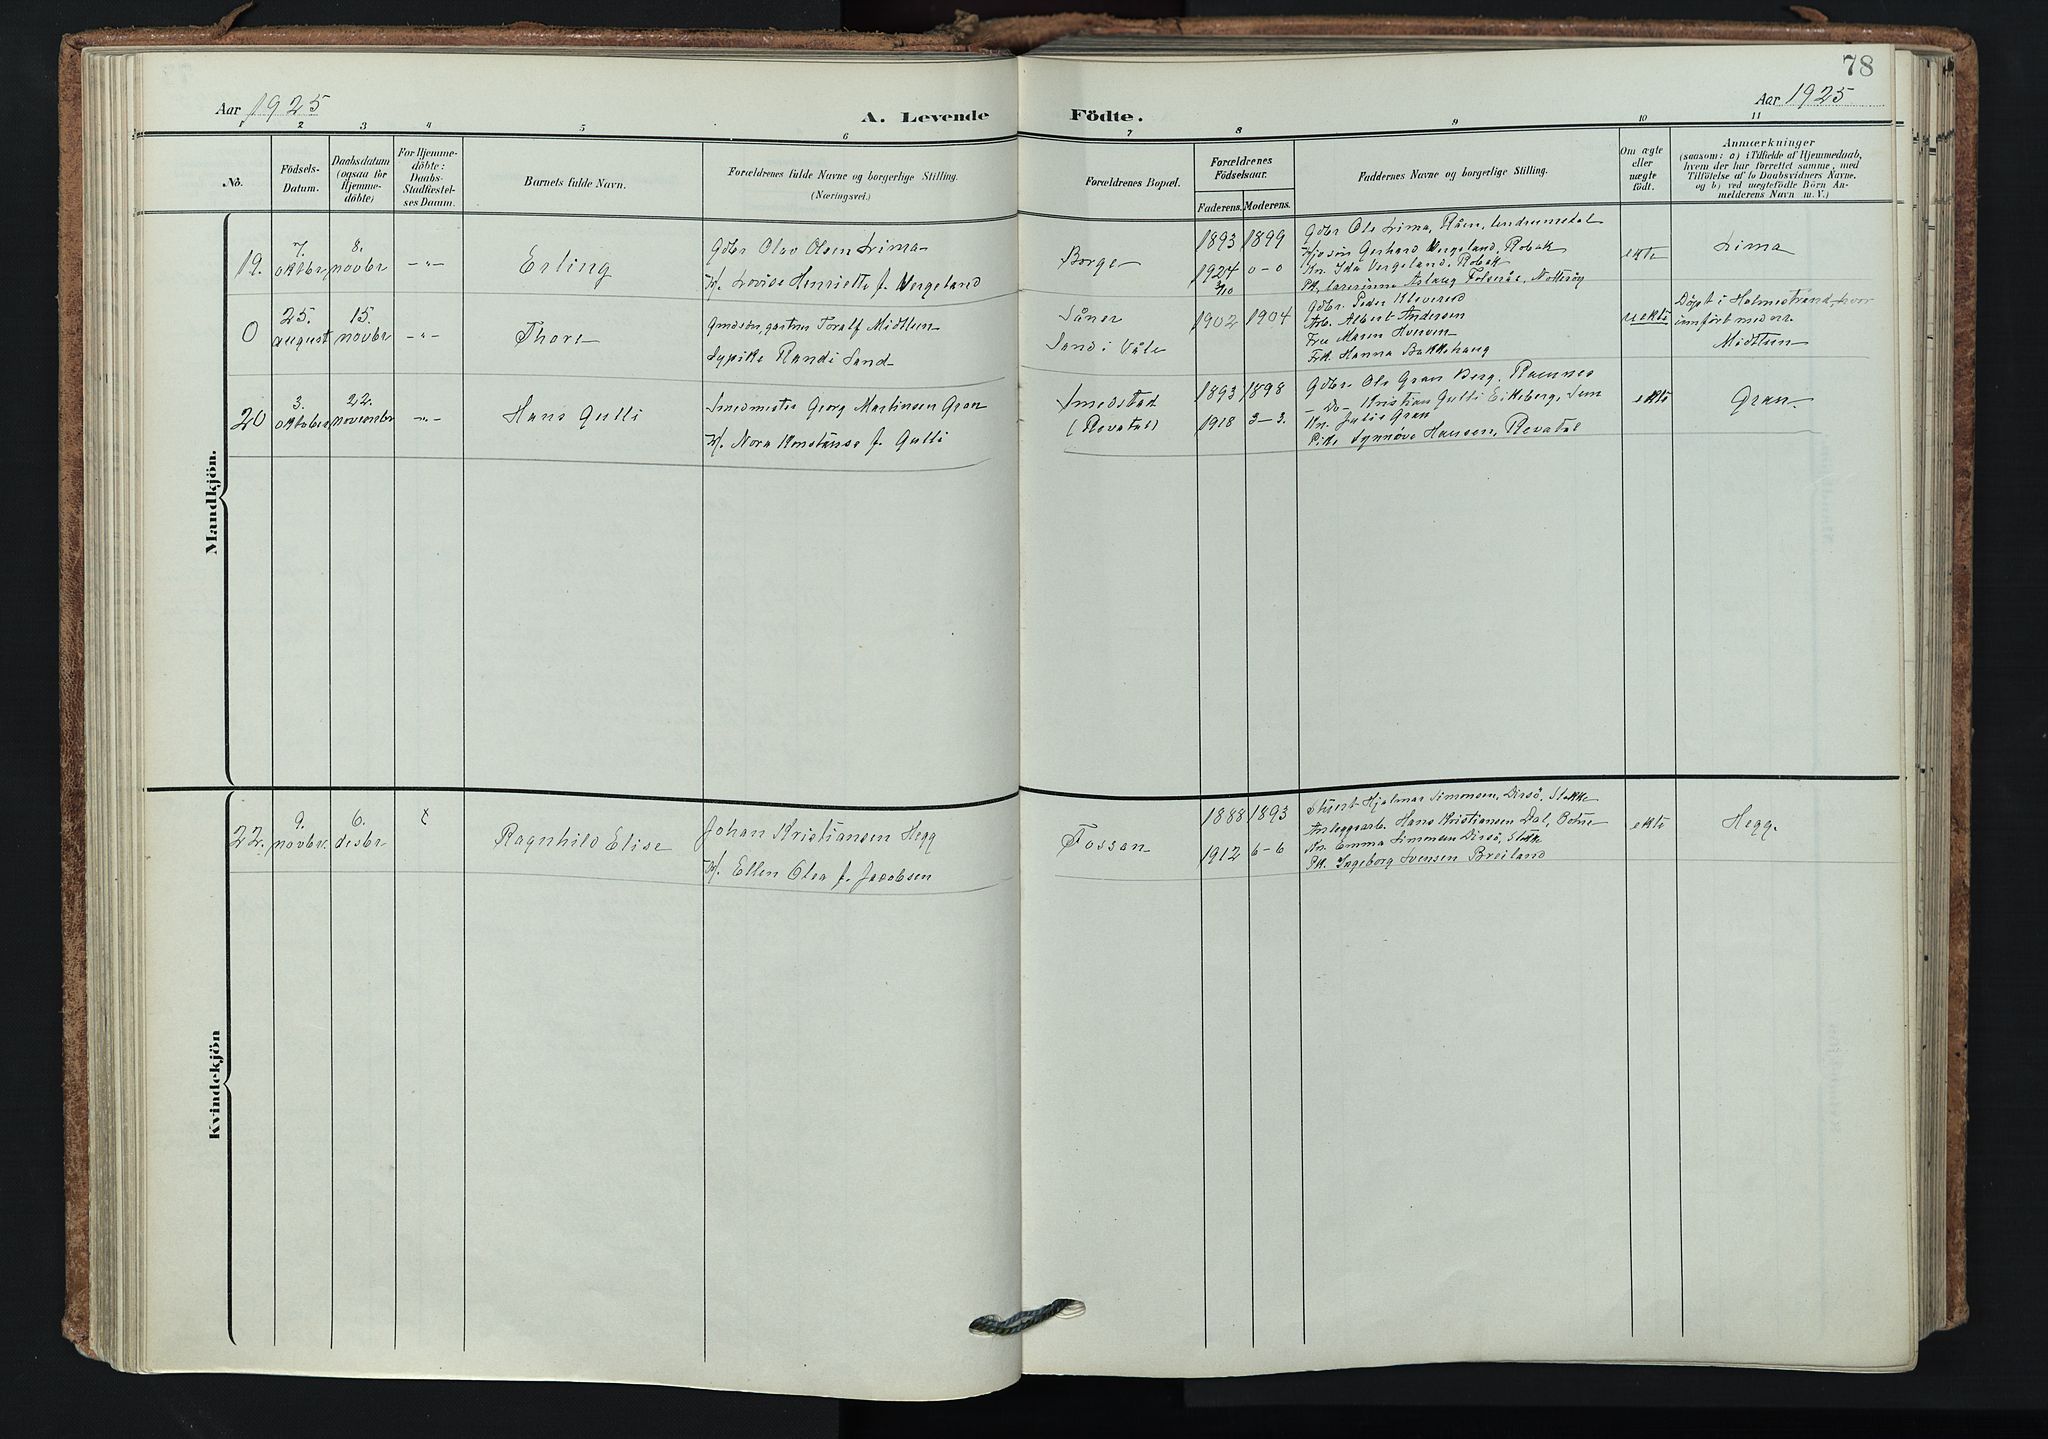 78
Aar 1925
A. Levende Födte.
Aar 1925
1 2 3 4 5 6 7 8 9 10 11
No.
Födsels-
Datum.
Daabsdatum
(ogsaa for
Hjemme-
döbte)
For Hjemme-
döbte:
Daabs-
Stadfæstel-
ses Datum.
Barnets fulde Navn.
Forældrenes fulde Navne og borgerlige Stilling.
(Næringsvei.)
Forældrenes Bopæl.
Forældrenes
Födselsaar.
Faderens. Moderens.
Faddernes Navne og borgerlige Stilling.
Om ægte
eller
uægte
født.
Anmærkninger
(saasom: a) i Tilfælde af Hjemmedaab,
hvem der har forrettet samme, med
Tilföielse af to Daabsvidners Navne,
og b) ved uægtefödte Börn An-
melderens Navn m. V.)
Mandkjön.
19.
7.
oktbr
8.
novbr
-"-
Erling
Gdbr Olav Olsen Lima
H. Lovise Henriette f. Vergeland
Borge
1893 1899
1924 0-0
3/10
Gdbr Ole Lima, Råen,
Gerhard Vergeland, Robak
Kn. Ida Vergeland, Robak
Pk. lærerinne Aslaug Nøtterøy
ekte
Lima
0
25.
august
15.
novbr
-"-
Thore
gartner Toralf Midtlun
Sypike Randi Sand
Såner
Sand i Våle
1902 1904
Gdbr. Peder Kleverud
Arb. Albert Andersen
Fru Maren Hverven
Frk. Hanna Bakkehaug
uekte
Døpt i Holmestrand, hvor
innført med nr.
Midtlun
20
3.
oktober
22.
november
-"-
Hans Gulli
Smedmester Georg Martinsen Gran
H. Nora Konstanse f. Gulli
Smedstad
(Revatal)
1893 1898
1918 3-3.
Gdbr. Ole Gran Berg, Ramnes
-Do- Kristian Gulli Eikeberg, Sem
Kn. Julie Gran
Pike Synnøve Hansen, Revatal
ekte
Gran.
Kvindekjön
22.
9.
novbr.
6.
desbr
Ragnhild Elise
Johan Kristiansen Hegg
H. Ellen Olea f. Jacobsen
Fossan
1888 1893
1912 6-6
Hjalmar Simonsen, Dirsø, Stokke
Anleggsarb. Hans Kristiansen Dal, Botne
Kn. Emma Simonsen Dirsø, Stokk
Pk. Ingeborg Svensen Breiland
ekte
Hegg.